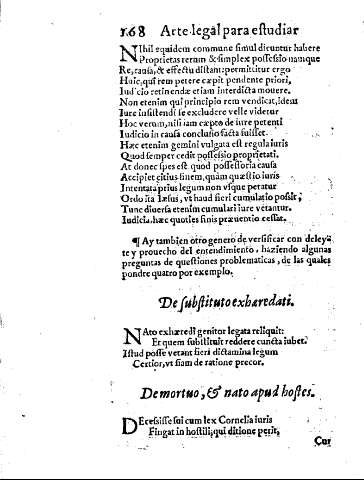 168 Arte legal para estudiar
Nihil equidem commune simul dicuntur habere
Proprietas rerum & simplex possessio namque
Re, causa, & effectu distant: permittitur ergo
Huic, qui rem petere cæpit pendente priori,
Iudicio retinendæ etiam interdicta mouere.
Non etenim qui principio rem vendicat, idem
Iure insistendi se excludere velle videtur
Hoc verum, nisi iam cæpto de iure petenti
Iudicio in causa conclusio facta fuisset.
Hæc etenim gemini vulgata est regula iuris
Quod semper cedit possessio proprietati.
At donec spes est quod possessoria causa
Accipiet citius finem, quàm quæstio iuris
Intentata prius legum non vsque peratur
Ordo ita læsus, vt haud fieri cumulatio possit,
Tunc diuersa etenim cumulari iure vetantur.
Iudicia, hæc quoties finis præuentio cessat.
¶ Ay tambien otro genero de versificar con deley-
te y prouecho del entendimiento, haziendo algunas
preguntas de questiones problematicas, de las quales
pondre quatro por exemplo.
De substituto exhæredati.
Nato exhæredi genitor legata reliquit:
Et quem substituit reddere cuncta iubet.
Istud posse vetant fieri dictamina legum
Certior, vt fiam de ratione precor.
De mortuo, & nato apud hostes.
Decessisse sui cum lex Cornelia iuris
Fingat in hostili, qui ditione perit,
Cur